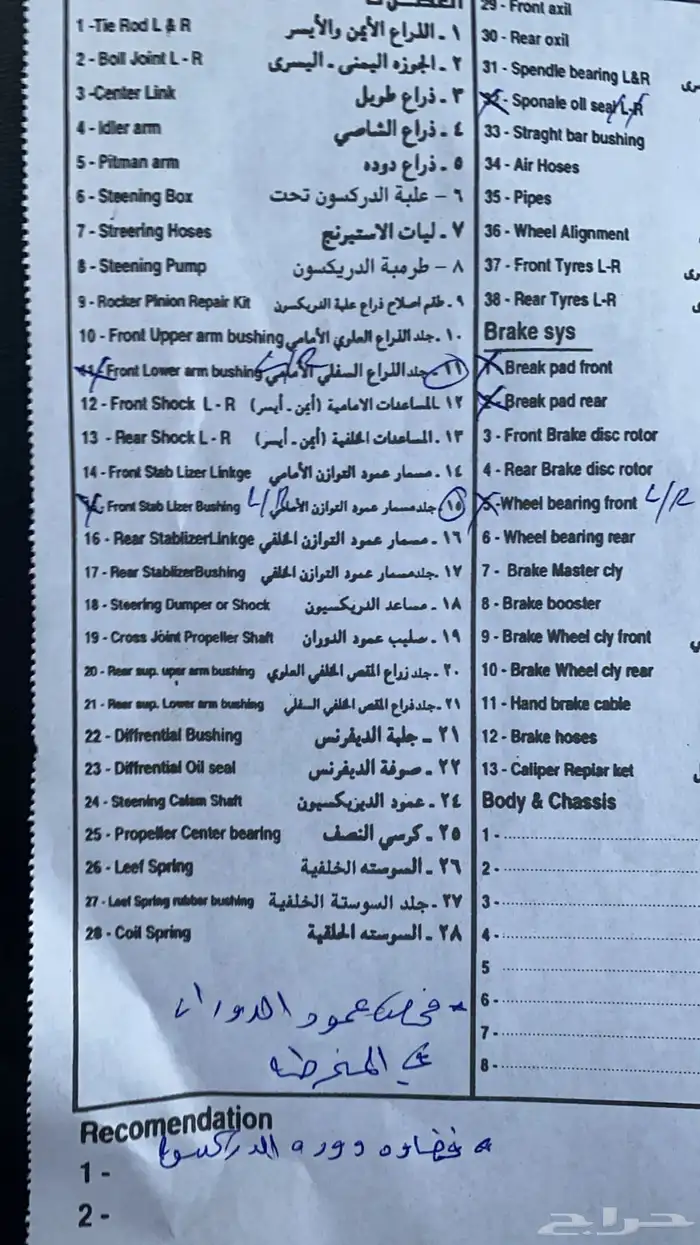 1 -Tie Rod L & R ١ ـ الذراع الأيمن والأيسر
2 - Boll Joint L - R ٢ ـ الجوزه اليمنى ـ اليسرى
3 -Center Link ٣ ـ ذراع طويل
4 - Idler arm ٤ ـ ذراع الشاصي
5 - Pitman arm ٥ ـ ذراع دوده
6 - Steening Box ٦ – علبة الدركسون تحت
7 - Streering Hoses ٧ ـ ليات الاستيرنج
8 - Steening Pump ٨ – طرمبة الدريكسون
9 - Rocker Pinion Repair Kit ٩ ـ طقم اصلاح ذراع علبة الدريكسون
10 - Front Upper arm bushing ١٠ ـ جلد الذراع العلوي الأمامي
11 - Front Lower arm bushing L/R ١١ ـ جلد الذراع السفلي الأمامي
12 - Front Shock L - R ١٢ المساعدات الامامية (أيمن ـ أيسر)
13 - Rear Shock L - R ١٣ ـ المساعدات الخلفية (أيمن ـ أيسر)
14 - Front Stab Lizer Linkge ١٤ ـ مسمار عمود التوازن الأمامي
Front Stab Lizer Bushing L/R ١٥ ـ جلد مسمار عمود التوازن الأمامي
16 - Rear StablizerLinkge ١٦ ـ مسمار عمود التوازن الخلفي
17 - Rear StablizerBushing ١٧ ـ جلدمسمار عمود التوازن الخلفي
18 - Steering Dumper or Shock ١٨ ـ مساعد الدريكسيون
19 - Cross Joint Propeller Shaft ١٩ ـ صليب عمود الدوران
20 - Rear sup. uper arm bushing ٢٠ ـ جلد زراع المقص الخلفي العلوي
21 - Rear sup. Lower arm bushing ٢١ ـ جلد ذراع المقص الخلفي السفلي
22 - Diffrential Bushing ٢١ ـ جلبة الديفرنس
23 - Diffrential Oil seal ٢٢ ـ صوفة الديفرنس
24 - Steening Calam Shaft ٢٤ ـ عمود الديزيكسيون
25 - Propeller Center bearing ٢٥ ـ كرسي النصف
26 - Leef Spring ٢٦ ـ السوسته الخلفية
27 - Leef Spring rubber bushing ٢٧ ـ جلد السوستة الخلفية
28 - Coil Spring ٢٨ ـ السوسته الخلقية
* فحص عمود الدوران
في المخرطه
29 - Front axil
30 - Rear oxil
31 - Spendle bearing L&R
- Sponale oll seal L-R
33 - Straght bar bushing
34 - Air Hoses
35 - Pipes
36 - Wheel Alignment
37 - Front Tyres L-R
38 - Rear Tyres L-R
Brake sys
Break pad front
Break pad rear
3 - Front Brake disc rotor
4 - Rear Brake disc rotor
5 -Wheel bearing front L/R
6 - Wheel bearing rear
7 - Brake Master cly
8 - Brake booster
9 - Brake Wheel cly front
10 - Brake Wheel cly rear
11 - Hand brake cable
12 - Brake hoses
13 - Caliper Replar ket
Body & Chassis
1 -
2 -
3 -
4 -
5
6 -
7 -
8 -
Recomendation
1 -
2 -
حراج